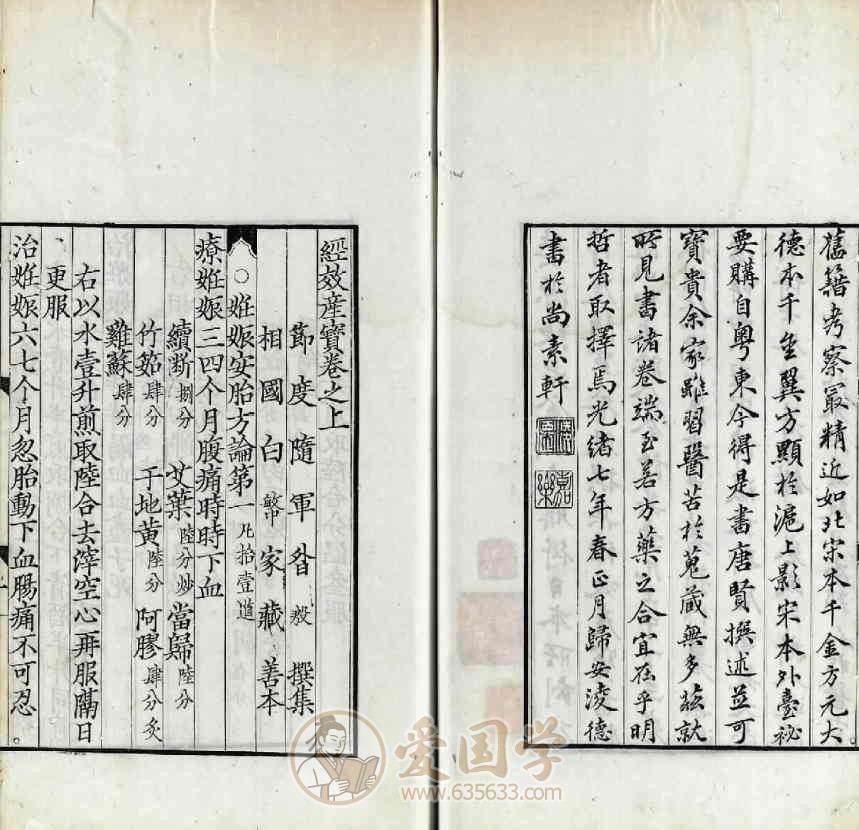 舊籍考察最精近如北宋本千金方元大
德本千金翼方顯於滬上影宋本外臺祕
要購自粵東今得是書唐賢撰述並可
寶貴余家雖習醫苦於蒐藏無多茲就
所見書諸卷端至若方藥之合宜在乎明
哲者取擇焉光緒七年春正月歸安淩德
書於尚素軒
經效産寶卷之上
節度隨軍昝殷撰集
相國白敏家藏善本
○姙娠安胎方論第一凡拾壹道
療姙娠三四个月腹痛時時下血
續斷捌分 艾葉陸分炒 當歸陸分
竹筎肆分 干地黄陸分 阿膠肆分炙
雞蘇肆分
右以水壹升煎取陸合去滓空心再服隔日
更服
治姙娠六七个月忽胎動下血腸痛不可忍
爱国学
www.635633.com